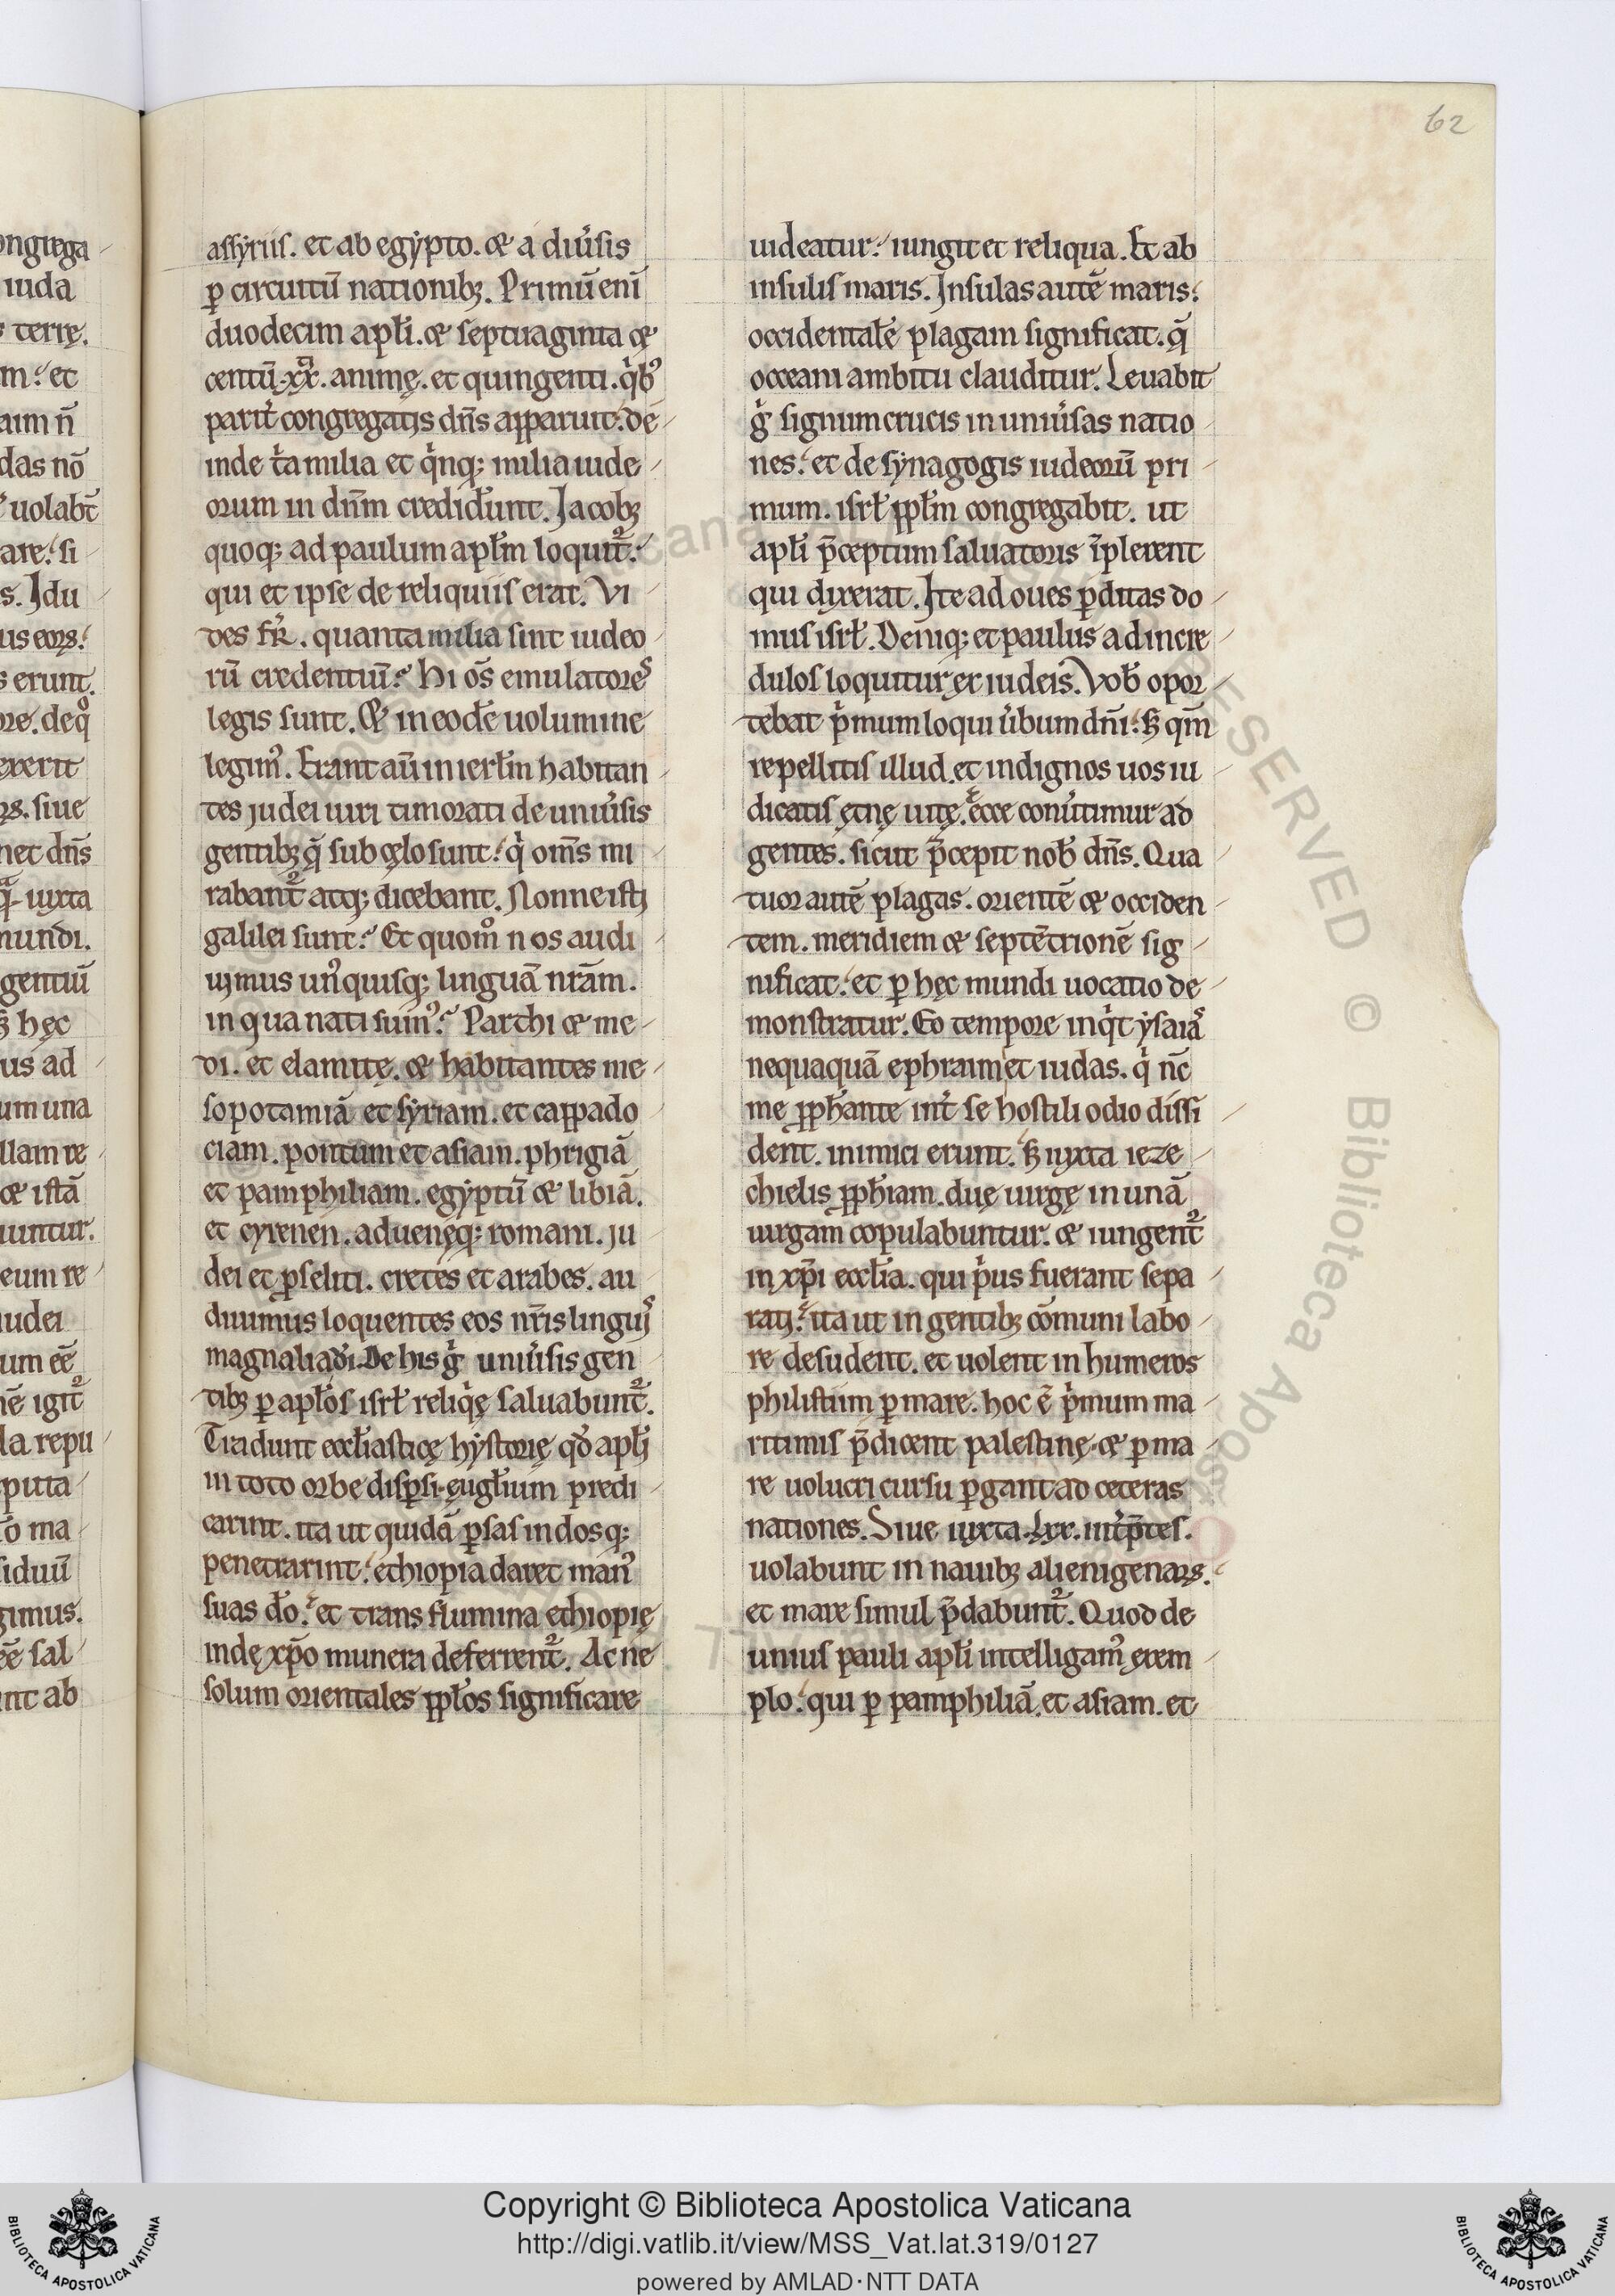 62
ongrega
iuda
s terrę.
m. et
aim n̄
das nō
uolabt̄
are. si
s. Idu
us eoꝝ.
s erunt.
ore. de qͦ
exerit
ꝝ. siue
net dn̄s
qͣ iuxta
mundi.
gentiū
s; hęc
us ad
um una
llam re
& istā
iuntur.
eum re
iudei
um eē
nē igit᷑
la repu
puta
o ma
siduū
gimus.
eē sal
nt ab
assyriis. et ab egypto. & a diu͛sis
ꝑ circuitū nationibꝫ. Primū eni
duodecim apłi. & septuaginta &
centū .xx. animę. et quingenti. qͥbꝰ
parit͛ congregatis dn̄s apparuit. de
inde t͛ta milia et qͥnqꝫ milia iude
orum in dn̄m credider̄unt. Iacobꝫ
quoqꝫ ad paulum apłm loquit᷑.
qui et ipse de reliquiis erat. Vi
des fr̄. quanta milia sint iudeo
rū credentiū? Hi om̄s emulatores
legis sunt. & in eodē uolumine
legimꝰ. Erant aū in ierłm habitan
tes iudei uiri timorati de uniu͛sis
gentibꝫ q̄ sub cęlo sunt. qͥ om̄s mi
rabant᷑ atqꝫ dicebant. Nonne isti
galilei sunt? Et quomͦ nos audi
uimus unꝰquisqꝫ linguā nr̄am.
in qua nati sumꝰ? Parthi & me
di. et elamitę. & habitantes me
sopotamiā et syriam. et cappado
ciam. pontum et asiam. phrigiā
et pamphiliam. egyptū & libiā.
et cyrenen. aduenęqꝫ romani. iu
dei et ꝓseliti. cretes et arabes. au
diuimus loquentes eos nr̄is linguis
magnalia dī. De his gͥ uniu͛sis gen
tibꝫ ꝑ apłos isrł reliqͥę saluabunt᷑.
Tradunt eccłiasticę hystorię qd̄ apłi
in toto orbe disꝑsi. euglium predi
carint. ita ut quidā ꝑsas indosqꝫ
penetrarint. ethiopia daret manꝰ
suas do. et trans flumina ethiopię
indę xp̄o munera deferrent᷑. Ac ne
solum orientales ppłos significare
uideatur. iungit et reliqua. Et ab
insulis maris. Insulas autē maris.
occidentalē plagam significat. q̄
occeani ambitu clauditur. Leuabit
gͥ signum crucis in uniu͛sas natio
nes. et de synagogis iudeorū pri
mum. isrł ppłm congregabit. ut
apłi p̄ceptum saluatoris īplerent
qui dixerat. Ite ad oues ꝑditas do
mus isrł. Deniqꝫ et paulus ad incre
dulos loquitur ex iudeis. Vob̄ opor
tebat pͥmum loqui u͛bum dn̄i. sꝫ qm̄
repellitis illud. et indignos uos iu
dicatis ęt̄nę uitę. ecce conu͛timur ad
gentes. sicut p̄cepit nob̄ dn̄s. Qua
tuor autē plagas. orientē & occiden
tem. meridiem & septētrionē sig
nificat. et ꝑ hęc mundi uocatio de
monstratur. Eo tempore inqͥt ysaias
nequaquā ephraim et iudas. qͥ nc̄
me pphante int͛ se hostili odio dissi
dent. inimici erunt. sꝫ iuxta ieze
chielis pphiam. duę uirgę in unā
uirgam copulabuntur. & iungent᷑
in xp̄i ecclia. qui pͥus fuerant sepa
rati. ita ut in gentibꝫ cōmuni labo
re desudent. et uolent in humeros
philistiim ꝑ mare. hoc ē pͥmum ma
ritimis p̄dicent palestinę. & ꝑ ma
re uolucri cursu ꝑgant ad ceteras
nationes. Siue iuxta .lxx. int͛p̄tes.
uolabunt in nauibꝫ alienigenaꝝ.
et mare simul p̄dabunt᷑. Quod de
unius pauli apłi intelligamꝰ exem
plo. qui ꝑ pamphiliā. et asiam. et
Copyright © Biblioteca Apostolica Vaticana
http://digi.vatlib.it/view/MSS_Vat.lat.319/0127
powered by AMLAD·NTT DATA
BIBLIOTECA APOSTOLICA VATICANA
BIBLIOTECA APOSTOLICA VATICANA